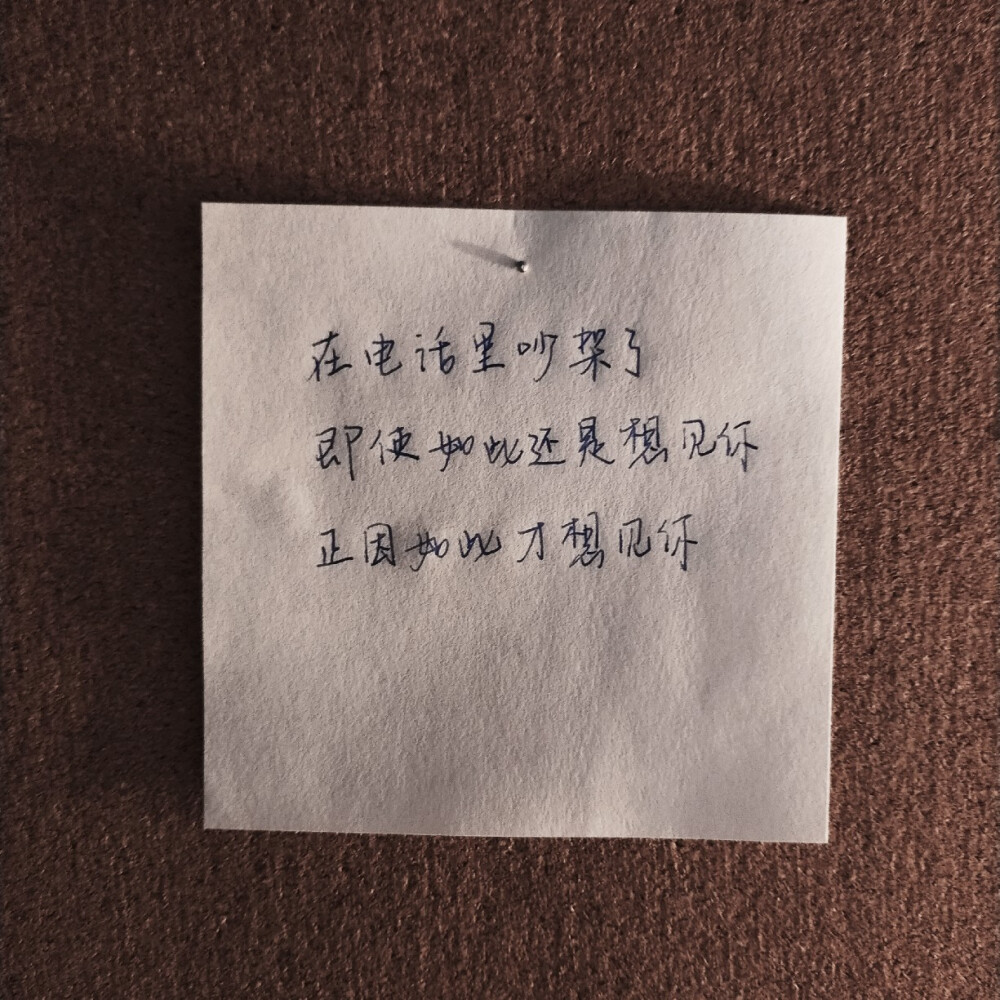 在电话里吵架了
即使如此还是想见你
正因如此才想见你